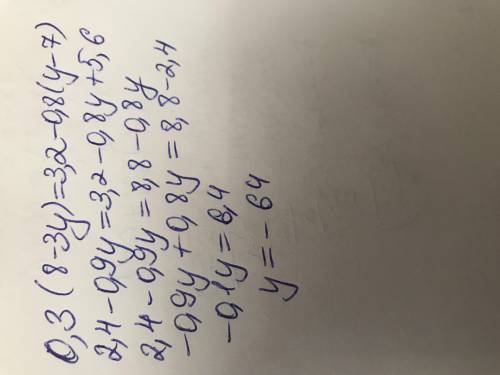 0,3 (8-3y)=3,2-0,8(y-7)
2,4-0,9y=3,2-0,8y+5,6
2,4-0,9y=8,8-0,8y
-0,9y+0,8y=8,8-2,4
-0,1y=6,4
y=-64